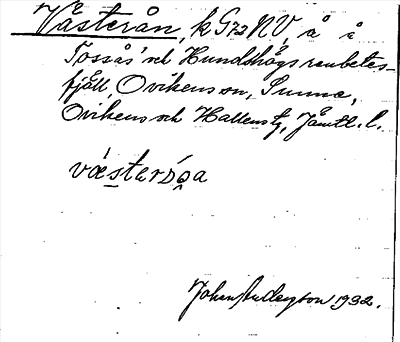 Västerån, k G73 NV, å å
Tossås och Hundshögs renbetes-
fjäll, Ovikens sn, Sunne,
Ovikens och Hallens tg, Jämtl. l.
væsterɔ́a
Johan Anderzson 1932.